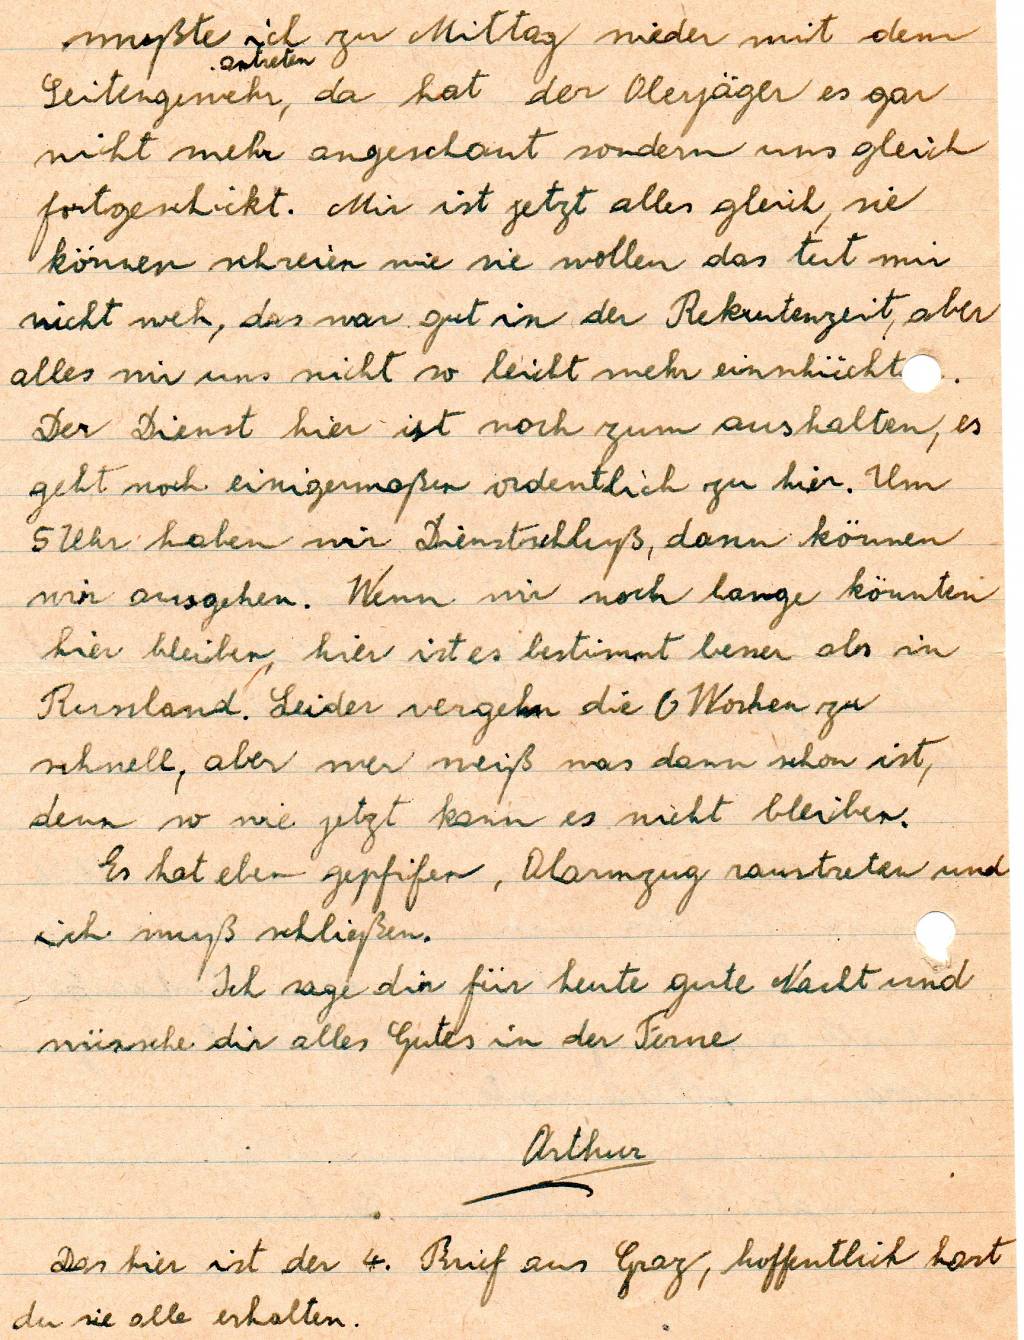 mußte ich zu Mittag wieder mit dem
antreten
Seitengewehr, da hat der Oberjäger es gar
nicht mehr angeschaut sondern uns gleich
fortgeschickt. Mir ist jetzt alles gleich, sie
können schreien wie sie wollen das tut mir
nicht weh, das war gut in der Rekrutenzeit, aber
alles wir uns nicht so leicht mehr einschücht .
Der Dienst hier ist noch zum aushalten, es
geht noch einigermaßen ordentlich zu hier. Um
5 Uhr haben wir Dienstschluß, dann können
wir ausgehen. Wenn wir noch lange könnten
hier bleiben, hier ist es bestimmt besser als in
Russland. Leider vergehn die 6 Wochen zu
schnell, aber wer weiß was dann schon ist,
denn so wie jetzt kann es nicht bleiben.
Es hat eben gepfifen, Alarmzug raustreten und
ich muß schließen.
Ich sage dir für heute gute Nacht und
wünsche dir alles Gutes in der Ferne
Arthur
Das hier ist der 4. Brief aus Graz, hoffentlich hast
du sie alle erhalten.